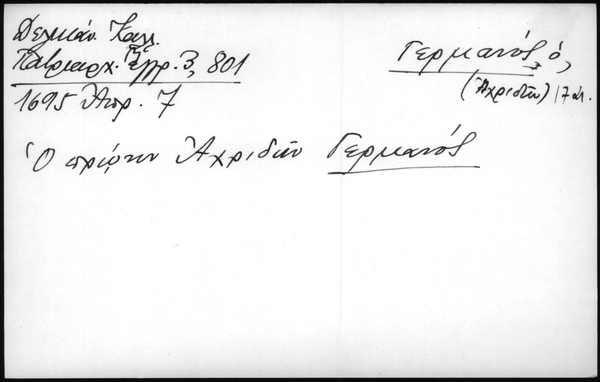 Δελικάν. Καλλ.
Πατριαρχ. Ἔγγρ. 3, 801
1695 Ἀπρ. 7
Γερμανός, ὁ,
(Ἀχριδῶν) 17 αἰ.
Ὁ πρώην Ἀχριδῶν Γερμανός